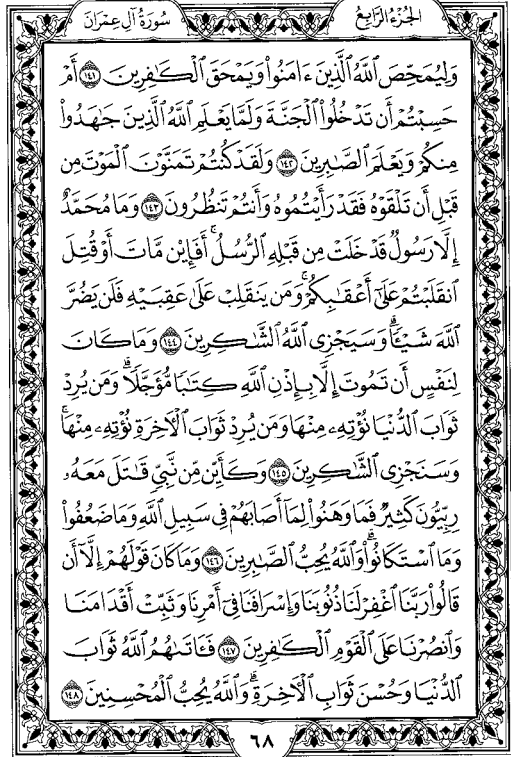 الجُزْءُ الرَّابِعُ
سُورَةُ آلِ عِمْرَانَ
وَلِيُمَحِّصَ ٱللَّهُ ٱلَّذِينَ ءَامَنُوا۟ وَيَمْحَقَ ٱلْكَـٰفِرِينَ ١٤١ أَمْ
حَسِبْتُمْ أَن تَدْخُلُوا۟ ٱلْجَنَّةَ وَلَمَّا يَعْلَمِ ٱللَّهُ ٱلَّذِينَ جَـٰهَدُوا۟
مِنكُمْ وَيَعْلَمَ ٱلصَّـٰبِرِينَ ١٤٢ وَلَقَدْ كُنتُمْ تَمَنَّوْنَ ٱلْمَوْتَ مِن
قَبْلِ أَن تَلْقَوْهُ فَقَدْ رَأَيْتُمُوهُ وَأَنتُمْ تَنظُرُونَ ١٤٣ وَمَا مُحَمَّدٌ
إِلَّا رَسُولٌ قَدْ خَلَتْ مِن قَبْلِهِ ٱلرُّسُلُ ۚ أَفَإِي۟ن مَّاتَ أَوْ قُتِلَ
ٱنقَلَبْتُمْ عَلَىٰٓ أَعْقَـٰبِكُمْ ۚ وَمَن يَنقَلِبْ عَلَىٰ عَقِبَيْهِ فَلَن يَضُرَّ
ٱللَّهَ شَيْـًٔا ۗ وَسَيَجْزِى ٱللَّهُ ٱلشَّـٰكِرِينَ ١٤٤ وَمَا كَانَ
لِنَفْسٍ أَن تَمُوتَ إِلَّا بِإِذْنِ ٱللَّهِ كِتَـٰبًا مُّؤَجَّلًا ۗ وَمَن يُرِدْ
ثَوَابَ ٱلدُّنْيَا نُؤْتِهِۦ مِنْهَا وَمَن يُرِدْ ثَوَابَ ٱلْـَٔاخِرَةِ نُؤْتِهِۦ مِنْهَا ۚ
وَسَنَجْزِى ٱلشَّـٰكِرِينَ ١٤٥ وَكَأَيِّن مِّن نَّبِىٍّ قَـٰتَلَ مَعَهُۥ
رِبِّيُّونَ كَثِيرٌ فَمَا وَهَنُوا۟ لِمَآ أَصَابَهُمْ فِى سَبِيلِ ٱللَّهِ وَمَا ضَعُفُوا۟
وَمَا ٱسْتَكَانُوا۟ ۗ وَٱللَّهُ يُحِبُّ ٱلصَّـٰبِرِينَ ١٤٦ وَمَا كَانَ قَوْلَهُمْ إِلَّآ أَن
قَالُوا۟ رَبَّنَا ٱغْفِرْ لَنَا ذُنُوبَنَا وَإِسْرَافَنَا فِىٓ أَمْرِنَا وَثَبِّتْ أَقْدَامَنَا
وَٱنصُرْنَا عَلَى ٱلْقَوْمِ ٱلْكَـٰفِرِينَ ١٤٧ فَـَٔاتَىٰهُمُ ٱللَّهُ ثَوَابَ
ٱلدُّنْيَا وَحُسْنَ ثَوَابِ ٱلْـَٔاخِرَةِ ۗ وَٱللَّهُ يُحِبُّ ٱلْمُحْسِنِينَ ١٤٨
٦٨